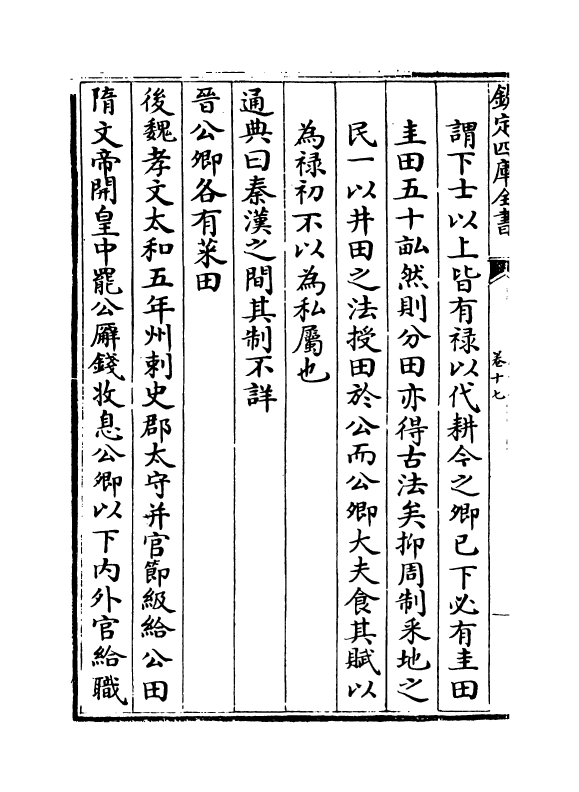 欽定四庫全書
卷十七
謂下士以上皆有禄以代耕今之卿已下必有圭田
圭田五十畝然則分田亦得古法矣抑周制采地之
民一以井田之法授田於公而公卿大夫食其賦以
為禄初不以為私屬也
通典曰秦漢之間其制不詳
晉公卿各有菜田
後魏孝文太和五年州刺史郡太守并官節級給公田
隋文帝開皇中罷公廨錢收息公卿以下内外官給職